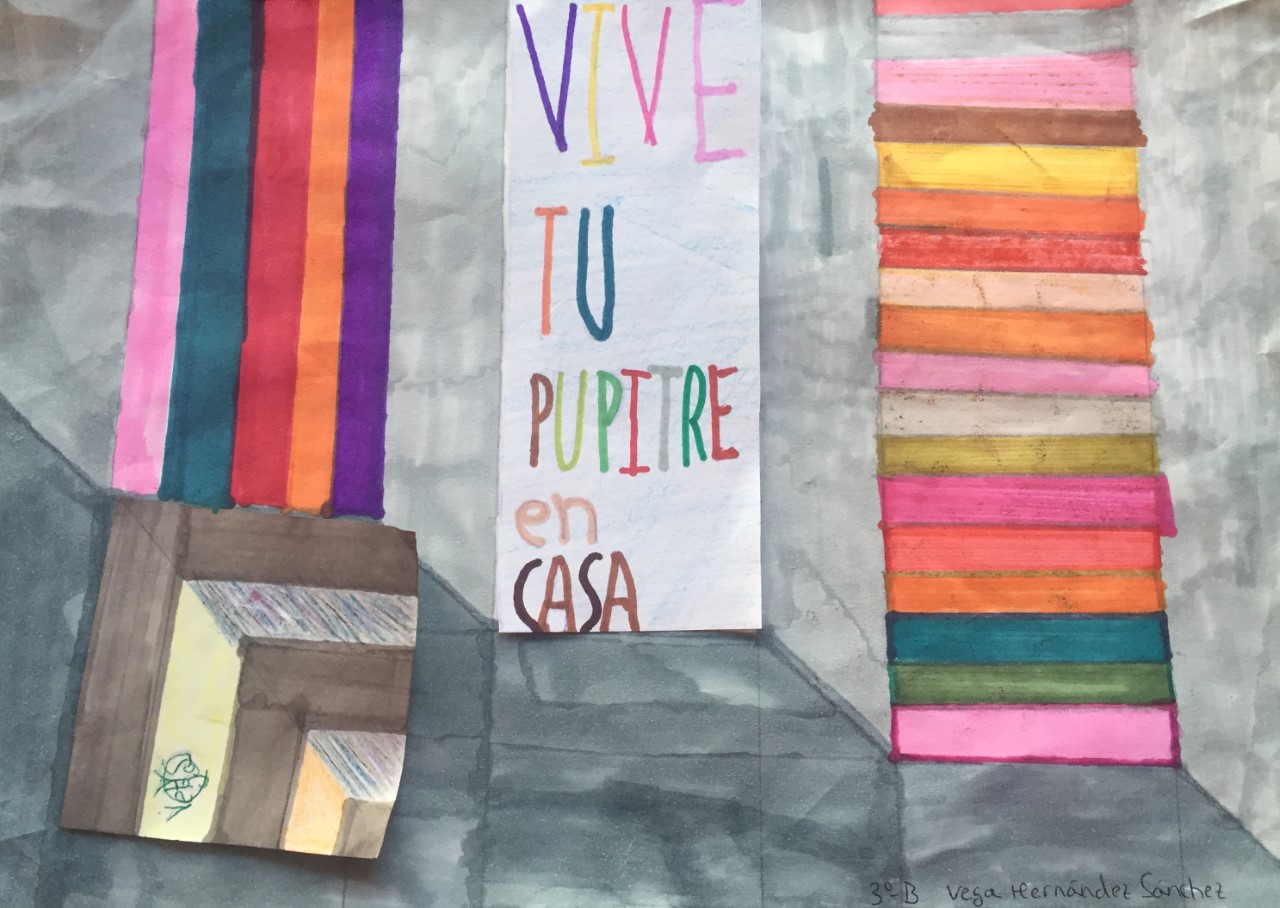 VIVE
TU
PUPITRE
en
CASA
3º-B Vega Hernández Sánchez